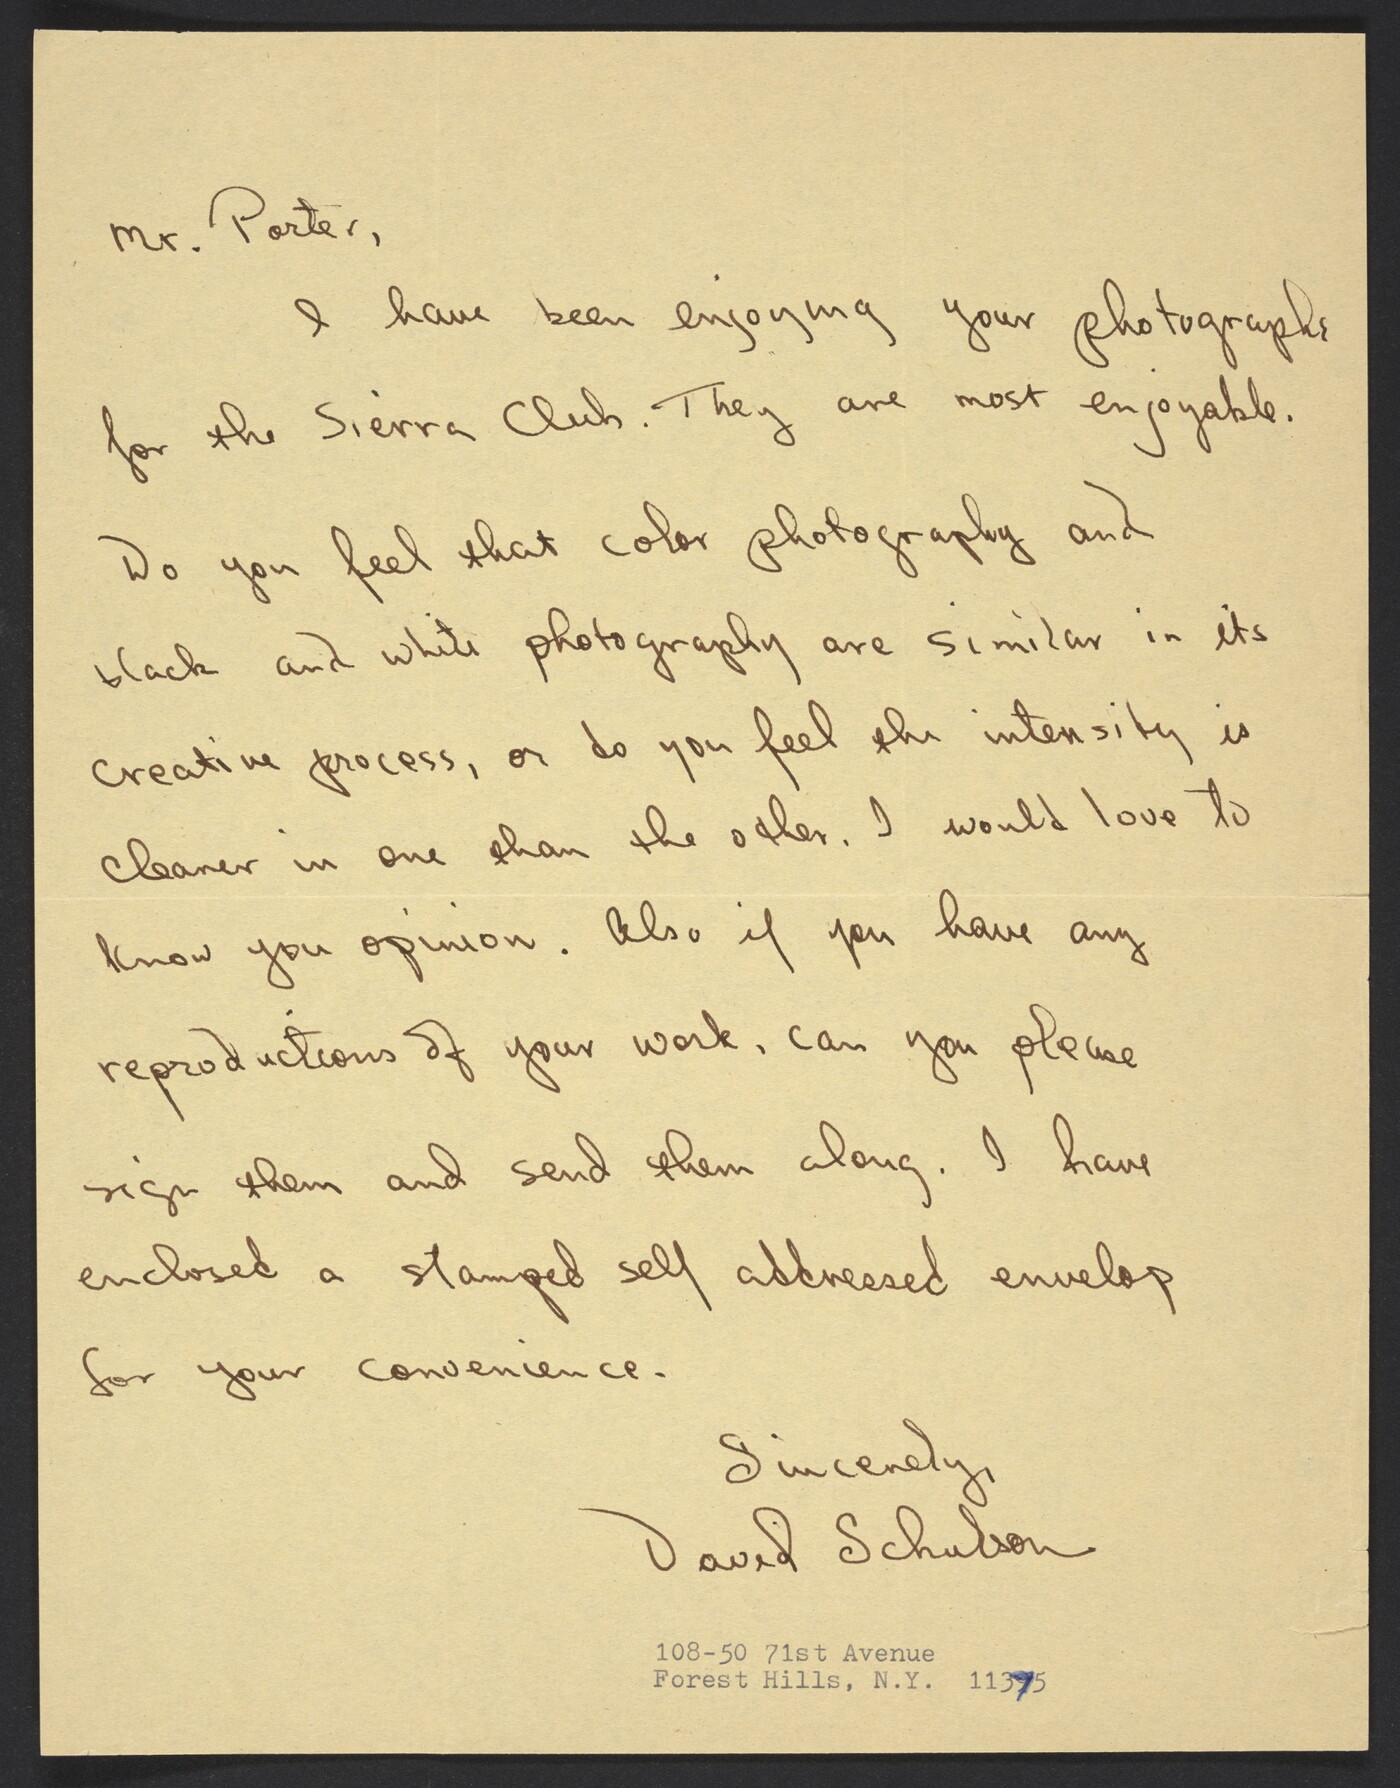 Mr. Porter,
I have been enjoying your photographs
for the Sierra Club. They are most enjoyable.
Do you feel that color photography and
black and white photography are similar in its
creative process, or do you feel the intensity is
cleaner in one than the other. I would love to
know you opinion. Also if you have any
reproductions of your work, can you please
sign them and send them along. I have
enclosed a stamped self addressed envelop
for your convenience.
Sincerely,
David Schulson
108-50 71st Avenue
Forest Hills, N.Y. 11375